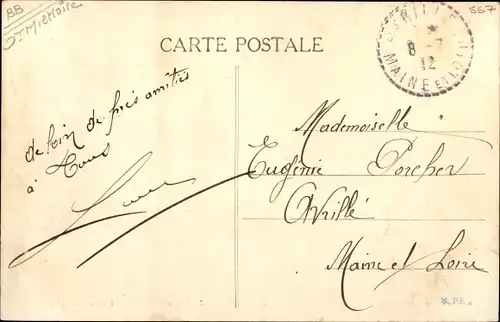 BB
557
CARTE POSTALE
8 - 7
12
MAINE ET LOIRE
de loin de près amitiés
à tous
Mademoiselle
Eugénie Porcher
Avrillé
Maine et Loire